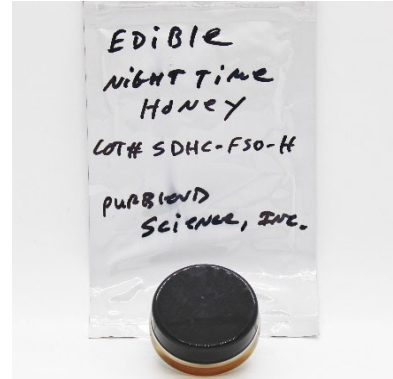 EDiBLe
NiGHT TiMe
HoNeY
LOT# SDHC-FSO-H
PURBLEND
SCieNCe, INC.